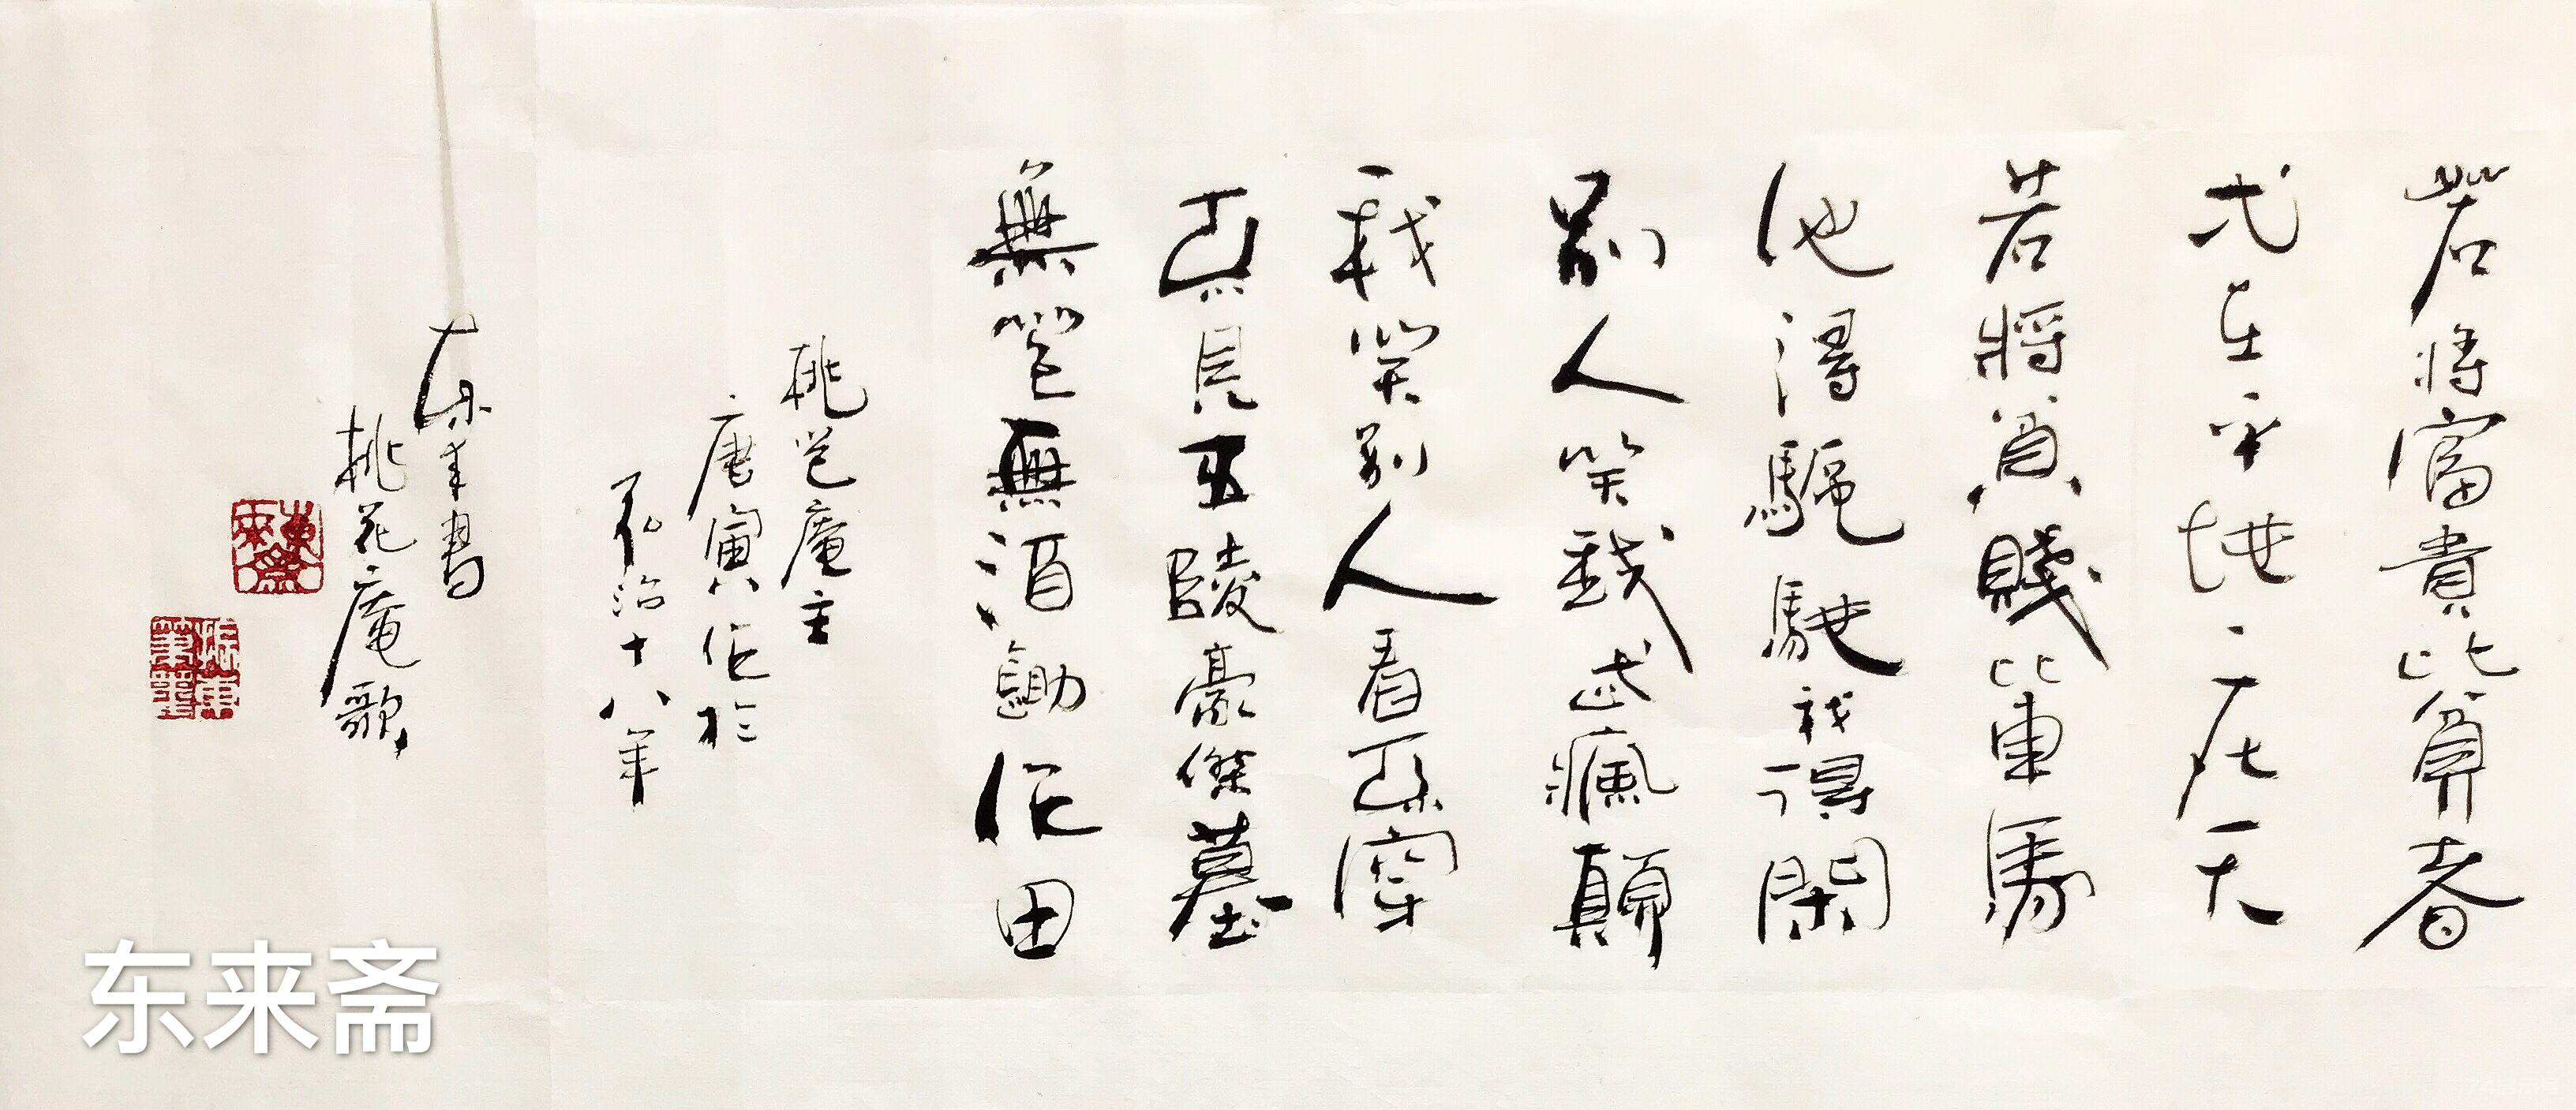 若将富貴比貧者
弌在平地一在天
若將貧賤比車馬
他得驅馳我得閑
別人笑我忒瘋顛
我笑別人看不穿
不見五陵豪傑墓
無花無酒鋤作田
桃花庵主
唐寅作於
弘治十八年
東来書
桃花庵歌
東來齋
东来斋